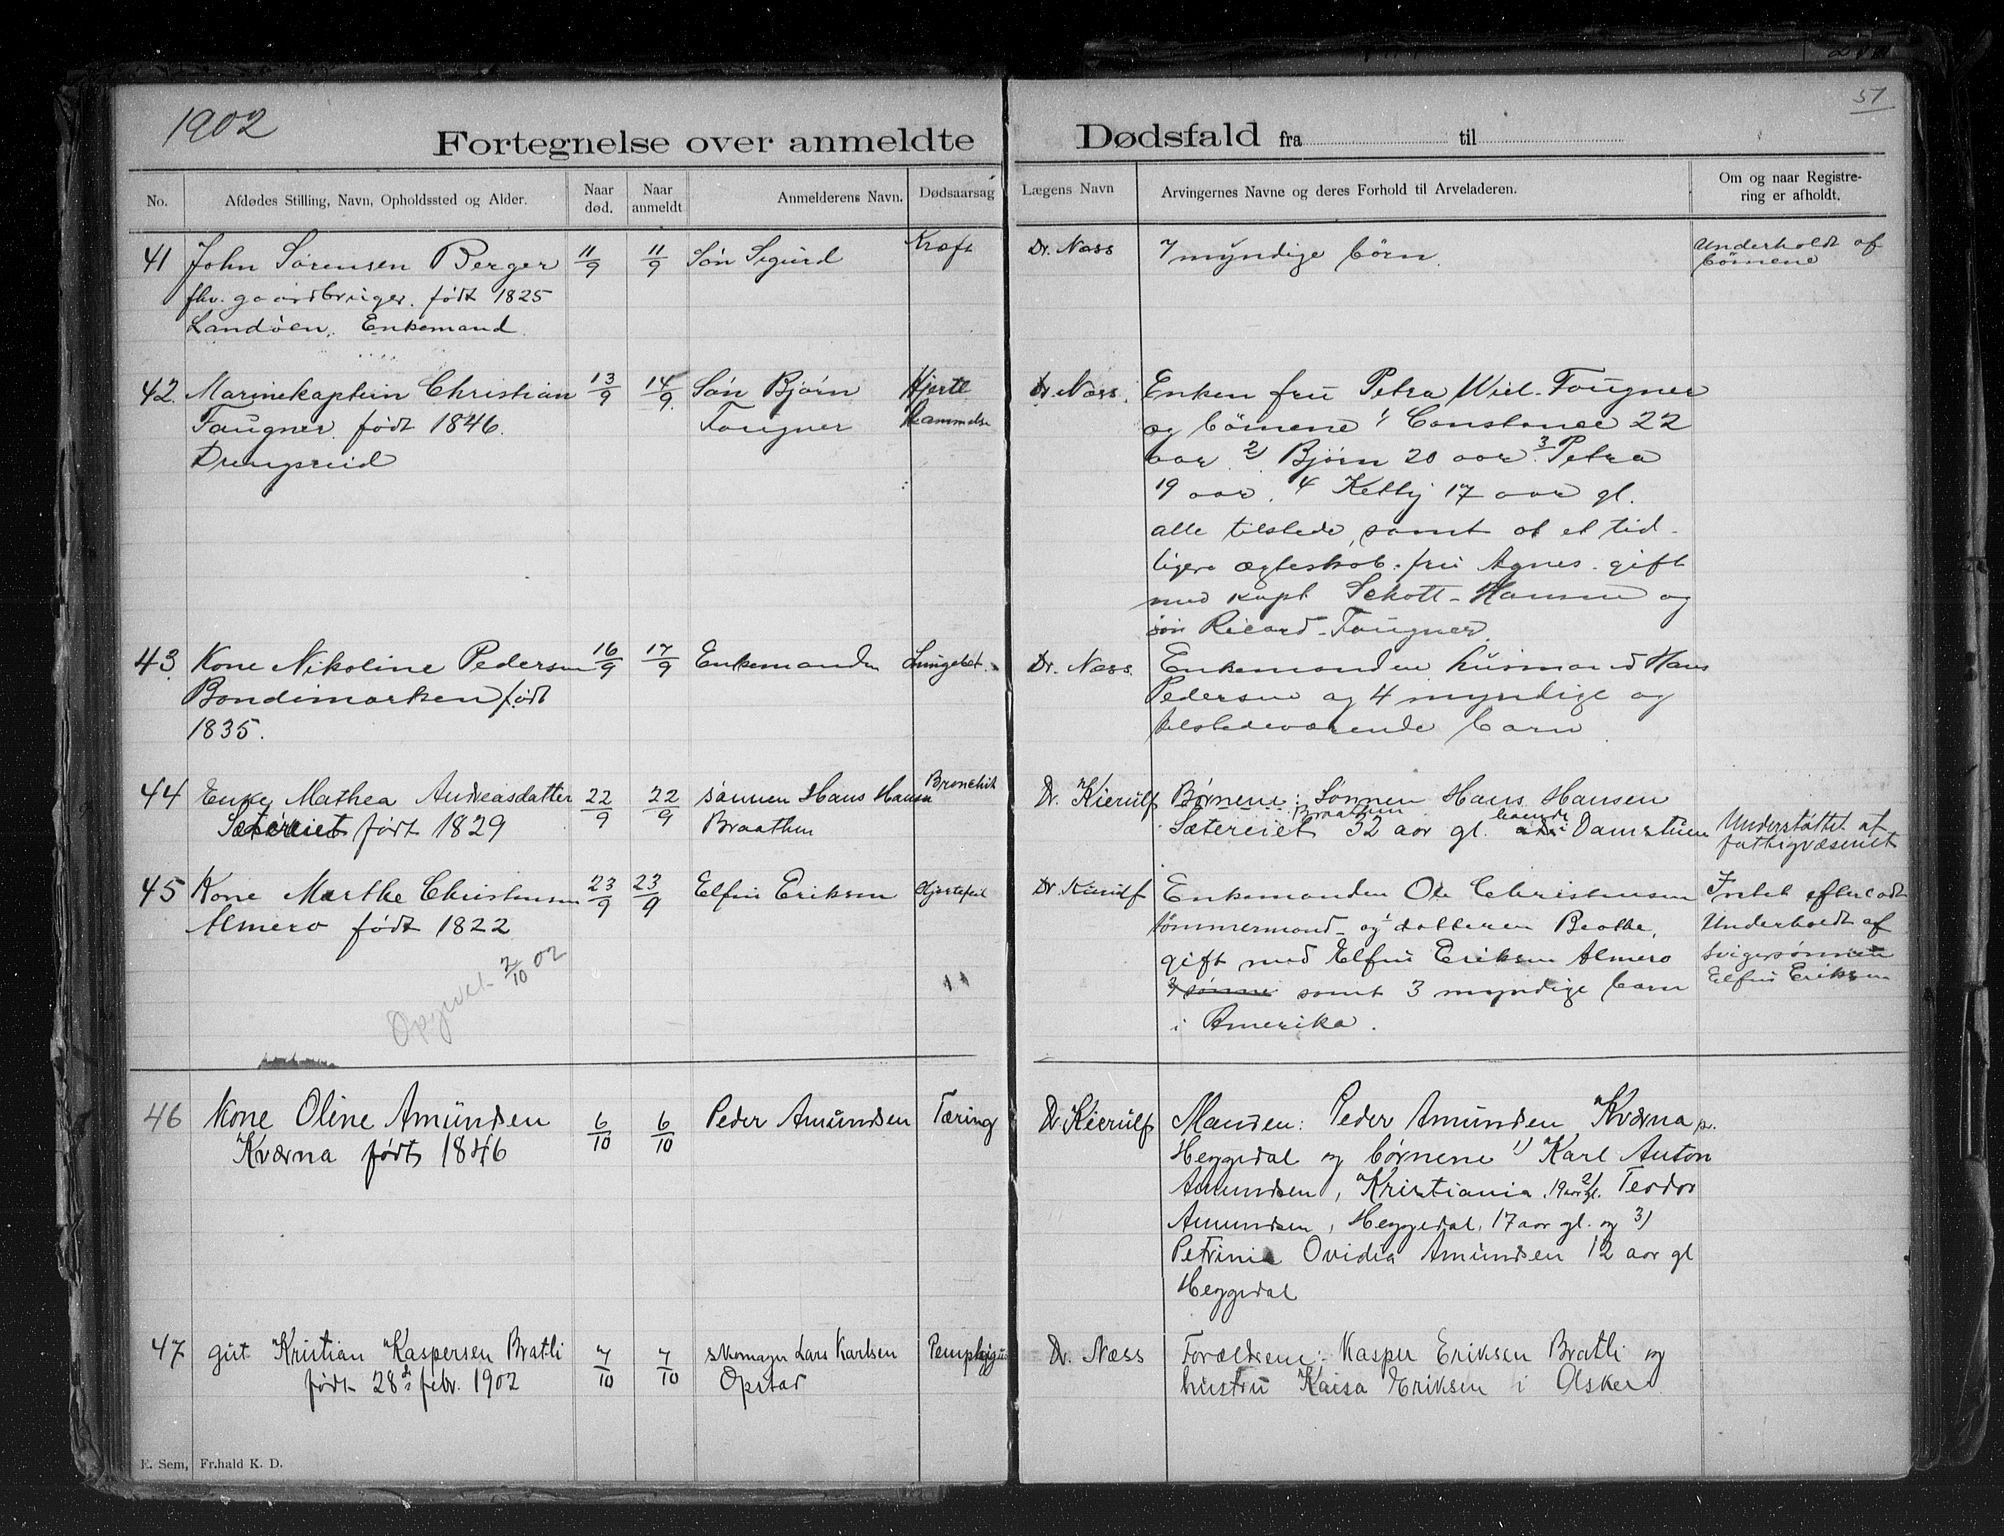 1902
51
Fortegnelse over anmeldte Dødsfald fra til
No. Afdødes Stilling, Navn, Opholdssted og Alder. Naar død. Naar anmeldt Anmelderens Navn. Dødsaarsag Lægens Navn Arvingernes Navne og deres Forhold til Arveladeren. Om og naar Registrering er afholdt.
41 John Sørensen Berger 11/9 11/9 Søn Sigurd Kræft Dr. Næss 7 myndige børn. Underholdt af
fhv. gaardbruger. født 1825 børnene
Landøen. Enkemand.
42. Marinekaptein Christian 13/9 14/9 Søn Bjørn Hjerte Dr. Næss. Enken fru Petra Wiel-Fougner
Fougner. født 1846. Fougner Lammelse og børnene 1/ Constance 22
aar 2/ Bjørn 20 aar 3 Petra
19 aar. 4 Ketty 17 aar gl.
alle tilstede, samt af et tid-
ligere ægteskab. fru Agnes. gift
med kapt Schott-Hansen og
søn Ricard-Fougner.
43. Kone Nikoline Pedersen 16/9 17/9 Enkemanden Lungebet. Dr. Næss. Enkemanden husmand Hans
Bondimarken født Pedersen og 4 myndige og
1835. tilstedeværende barn
44 Enke Mathea Andreasdatter 22/9 22/9 sønnen Hans Hansen Bronchit Dr. Kierulf Børnene: Sønnen Hans Hansen
Sætereiet født 1829 Braathen Braathen
Sætereiet 32 aar gl. boende i Damstuen Understøttet af
fattigvæsenet
45 Kone Marthe Christensen 23/9 23/9 Elfin Eriksen Hjertefeil Dr Kierulf Enkemanden Ole Christensen Intet efterladt
Almero født 1822 tømmermand og datteren Beathe, Underholdt af
gift med Elfin Eriksen Almero svigersønnen
3 sønner samt 3 myndige barn Elfin Eriksen
i Amerika.
Opgivet 2/10 02
46 Kone Oline Amundsen 6/10 6/10 Peder Amundsen Tæring Dr Kierulf Manden: Peder Amundsen Kværna p.
Kværna født 1846 Heggedal og børnene 1) Karl Anton
Amundsen, Kristiania, 19 aar gl. 2/ Teodor
Amundsen, Heggedal, 17 aar gl. og 3)
Petrine Ovidia Amundsen 12 aar gl
Heggedal
47 gut Kristian Kaspersen Bratli 7/10 7/10 skomager Lars Karlsen Pemphigus Dr. Næss Forældrene: Kasper Eriksen Bratli og
født 28de febr. 1902 Opstad hustru Kaisa Eriksen i Asker
E. Sem, Fr.hald K. D.